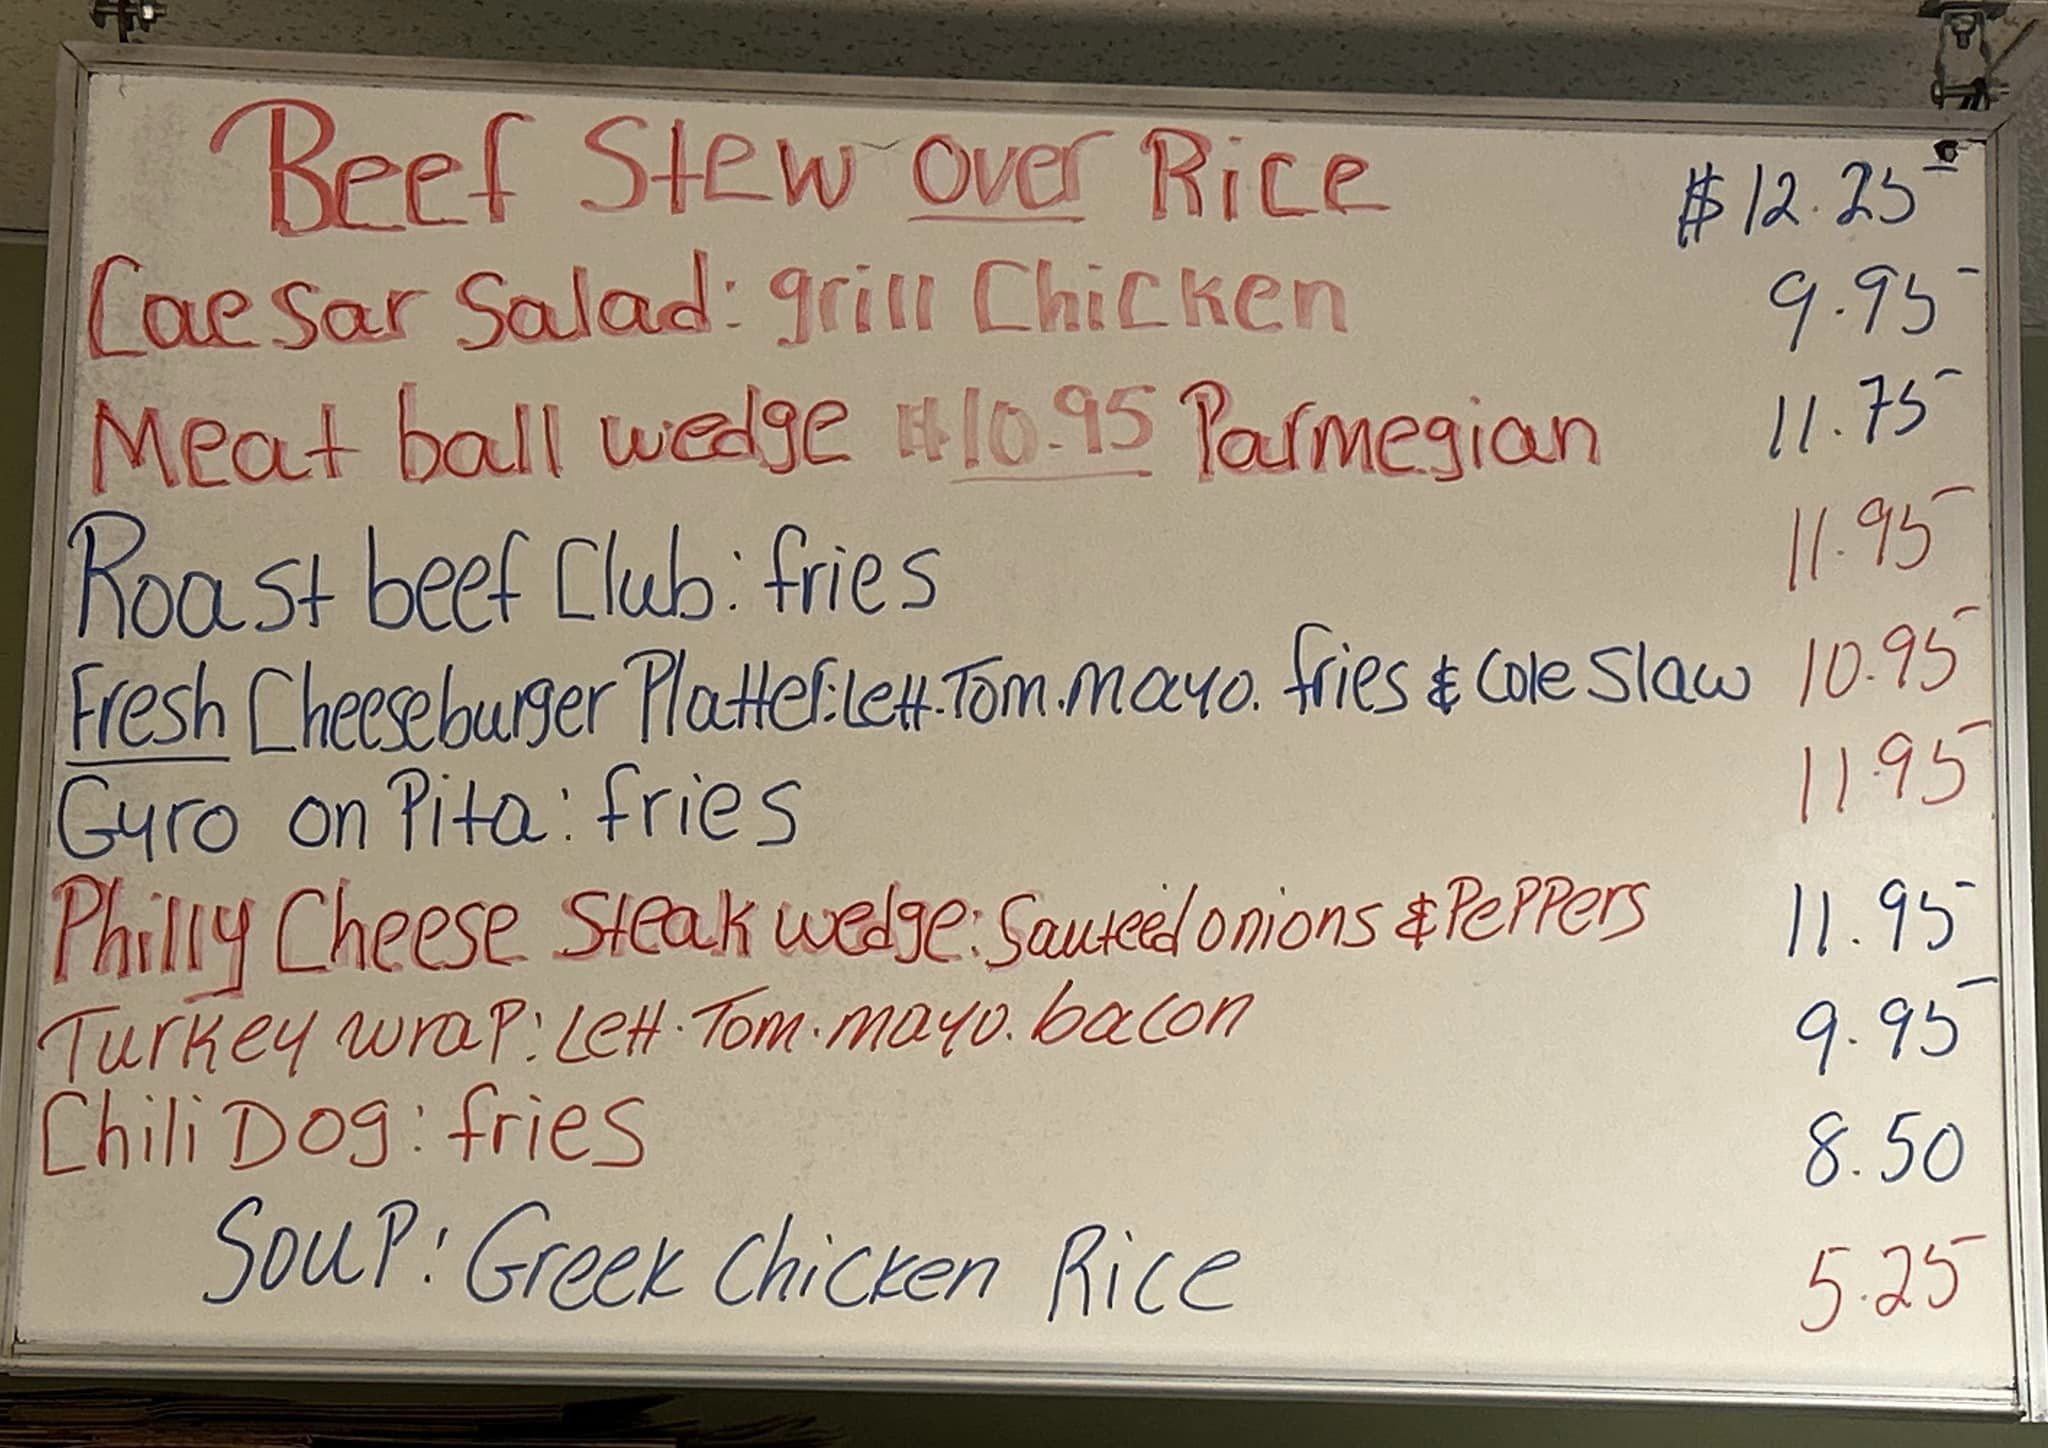 Beef Stew over Rice $12.25
Caesar Salad: grill Chicken 9.95
Meat ball wedge $10.95 Parmegian 11.75
Roast beef Club: fries 11.95
Fresh Cheeseburger Platter: Lett. Tom. mayo. fries & Cole Slaw 10.95
Gyro on Pita: fries 11.95
Philly Cheese Steak wedge: Sauteed onions & Peppers 11.95
Turkey wrap: Lett. Tom. mayo. bacon 9.95
Chili Dog: fries 8.50
Soup: Greek Chicken Rice 5.25